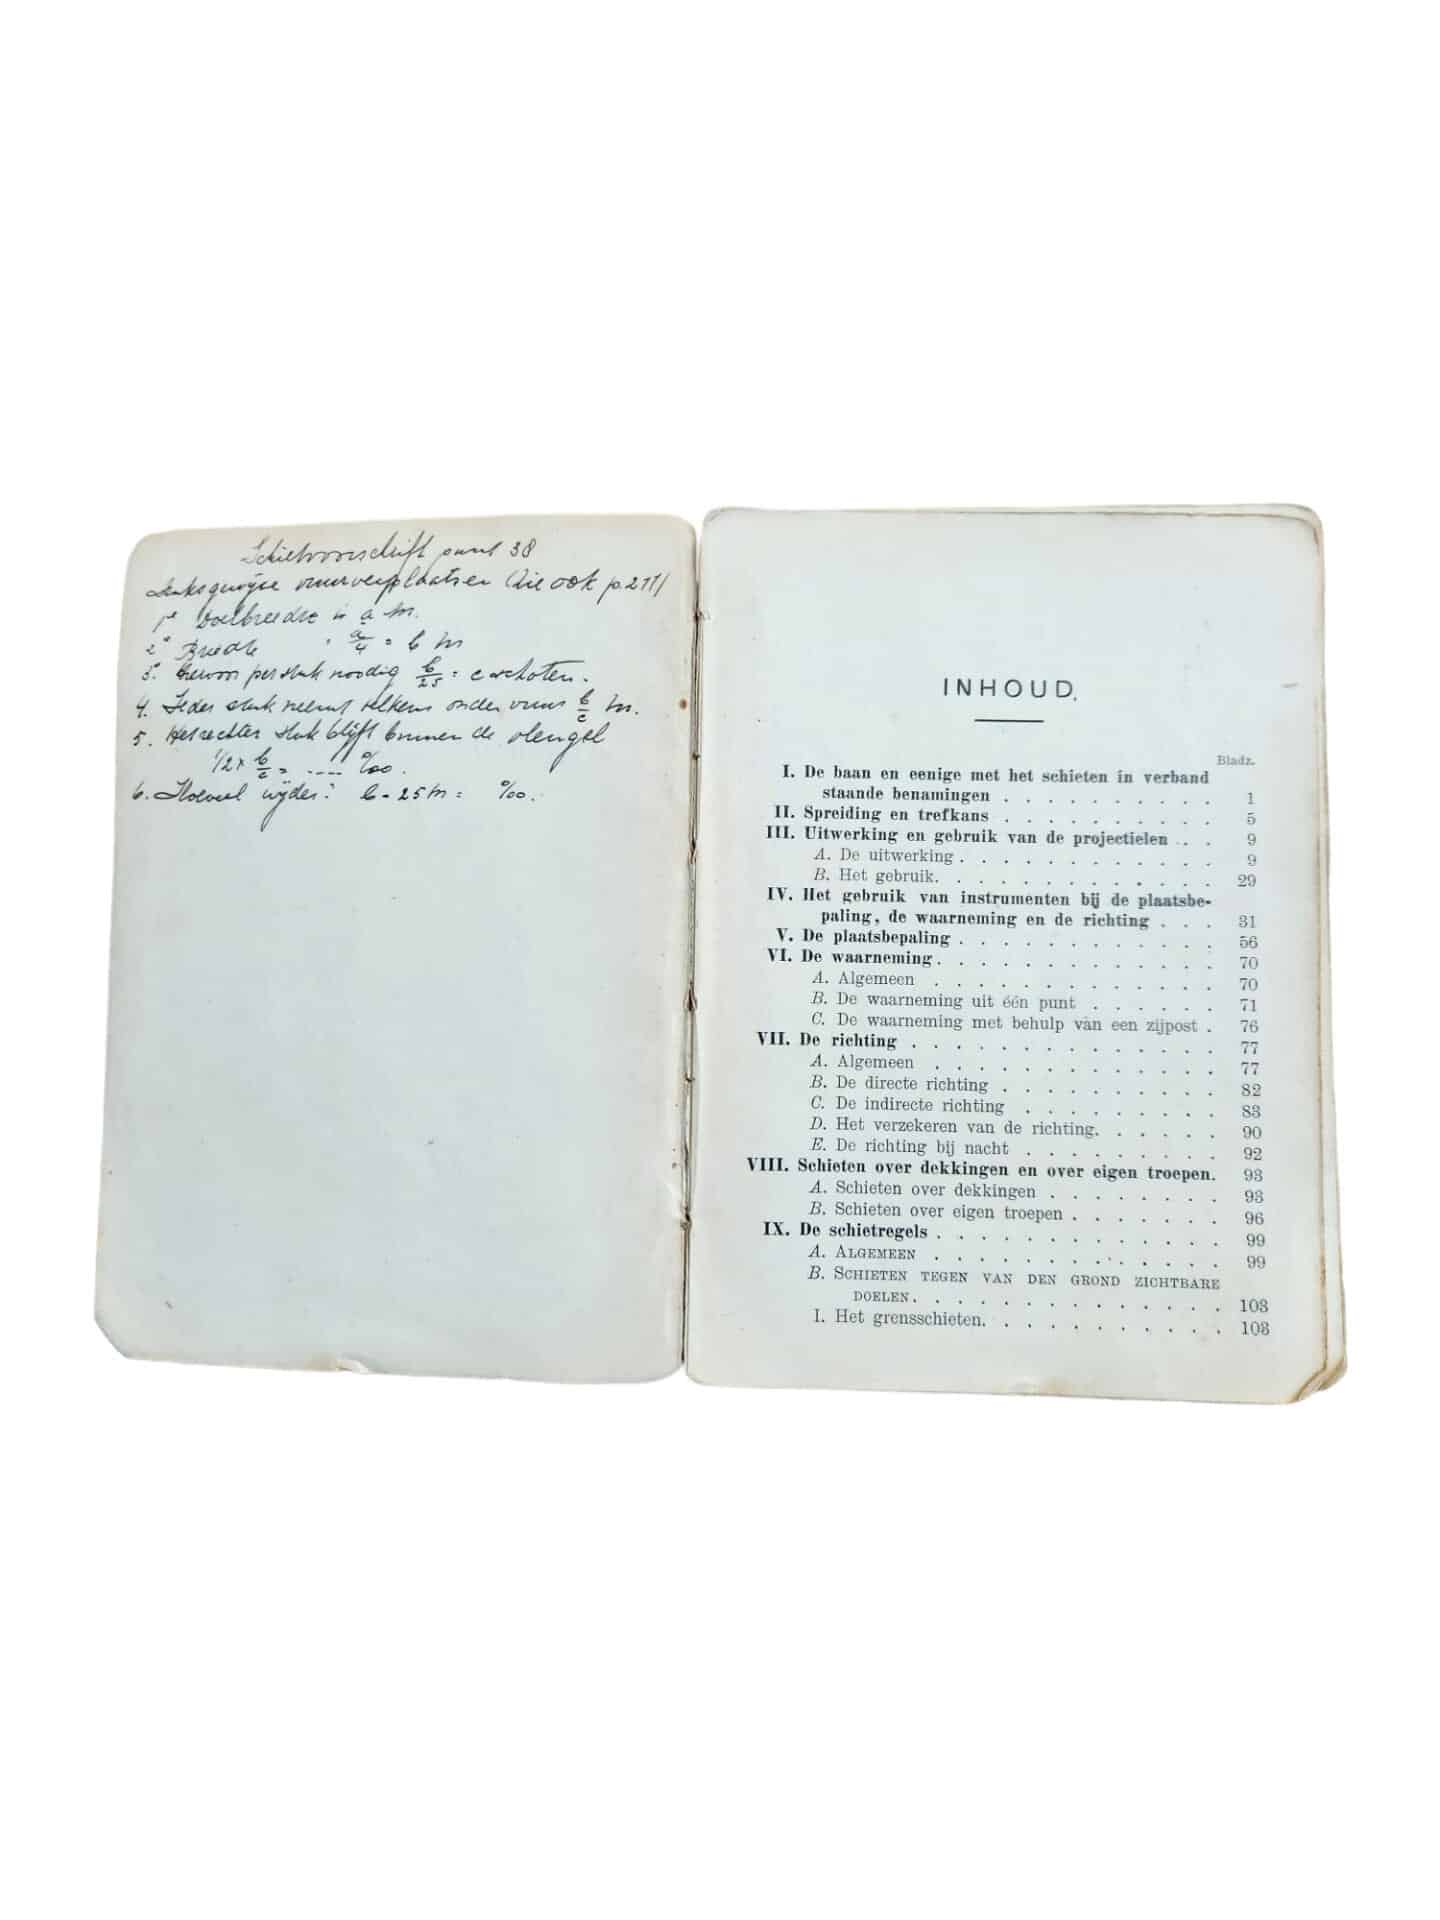 Schietvoorschrift punt 38
vuurverplaatsen (Zie ook p. 211)
1e Doelbreedte is a m.
2e Breedte " a/4 = b m
3e per stuk noodig b/25 = c schoten.
4. Ieder stuk neemt telkens onder vuur b/c m.
5. Het rechter stuk blijft binnen de vleugel
1/2 x b/c = .... ‰.
6. Hoeveel wijder? b - 25 m = ‰.
INHOUD.
Bladz.
I. De baan en eenige met het schieten in verband
staande benamingen . . . . . . . . . . 1
II. Spreiding en trefkans . . . . . . . . . . 5
III. Uitwerking en gebruik van de projectielen . . 9
A. De uitwerking . . . . . . . . . . . . 9
B. Het gebruik. . . . . . . . . . . . . 29
IV. Het gebruik van instrumenten bij de plaatsbe-
paling, de waarneming en de richting . . . 31
V. De plaatsbepaling . . . . . . . . . . . . 56
VI. De waarneming. . . . . . . . . . . . . 70
A. Algemeen . . . . . . . . . . . . . 70
B. De waarneming uit één punt . . . . . . 71
C. De waarneming met behulp van een zijpost . 76
VII. De richting . . . . . . . . . . . . . . 77
A. Algemeen . . . . . . . . . . . . . 77
B. De directe richting . . . . . . . . . . 82
C. De indirecte richting . . . . . . . . . 83
D. Het verzekeren van de richting. . . . . . 90
E. De richting bij nacht . . . . . . . . . 92
VIII. Schieten over dekkingen en over eigen troepen. 93
A. Schieten over dekkingen . . . . . . . . 93
B. Schieten over eigen troepen . . . . . . . 96
IX. De schietregels . . . . . . . . . . . . . 99
A. ALGEMEEN . . . . . . . . . . . . . 99
B. SCHIETEN TEGEN VAN DEN GROND ZICHTBARE
DOELEN. . . . . . . . . . . . . . . 103
I. Het grensschieten. . . . . . . . . . . 103